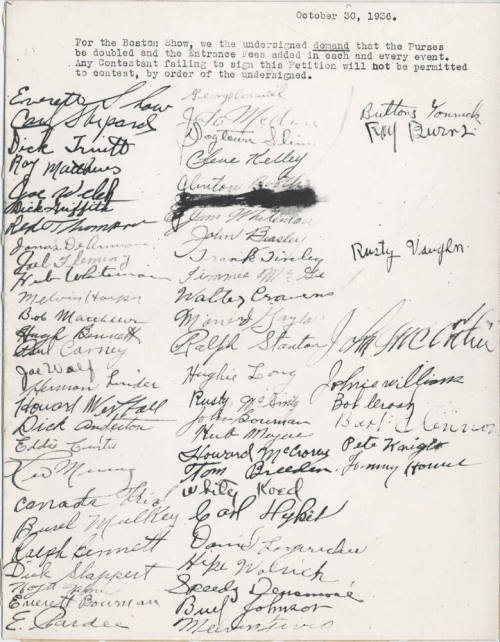 October 30, 1936.
For the Boston Show, we the undersigned demand that the Purses
be doubled and the Entrance Fees added in each and every event.
Any Contestant failing to sign this Petition will not be permitted
to contest, by order of the undersigned.
Everett Shaw
Carl Shepard
Dick Truitt
Roy Matthews
Dick Griffith
Rede Thompson
Jonas DeArman
Joel Fleming
Hub Whiteman
Melvin Harper
Bob Matthews
Hugh Bennett
Paul Carney
Joe Wolf
Herman Linder
Howard Westfall
Dick Anderton
Eddie Curtis
Canada Kid
Burel Mulkey
Ralph Bennett
Dick Slappert
Everett Bowman
E. Pardee
Dogtown Slim
Clene Kelley
Clinton Booth
Jim Whiteman
John Beasley
Frank Finley
Jimmie McGee
Walter Cravens
Ralph Stanton
Hughie Long
Rusty McGinty
John Bowman
Herb Meyers
Howard McCrorey
Tom Breeden
Whitey Koed
Carl Hybil
David
Hipe Wolrich
Speedy Densmore
Buel Johnson
Buttons Yonnick
Roy Burns
Rusty Vaughn
John McEntire
Johnie Williams
Bob
Bart Clennon
Pete Knight
Tommy Horner